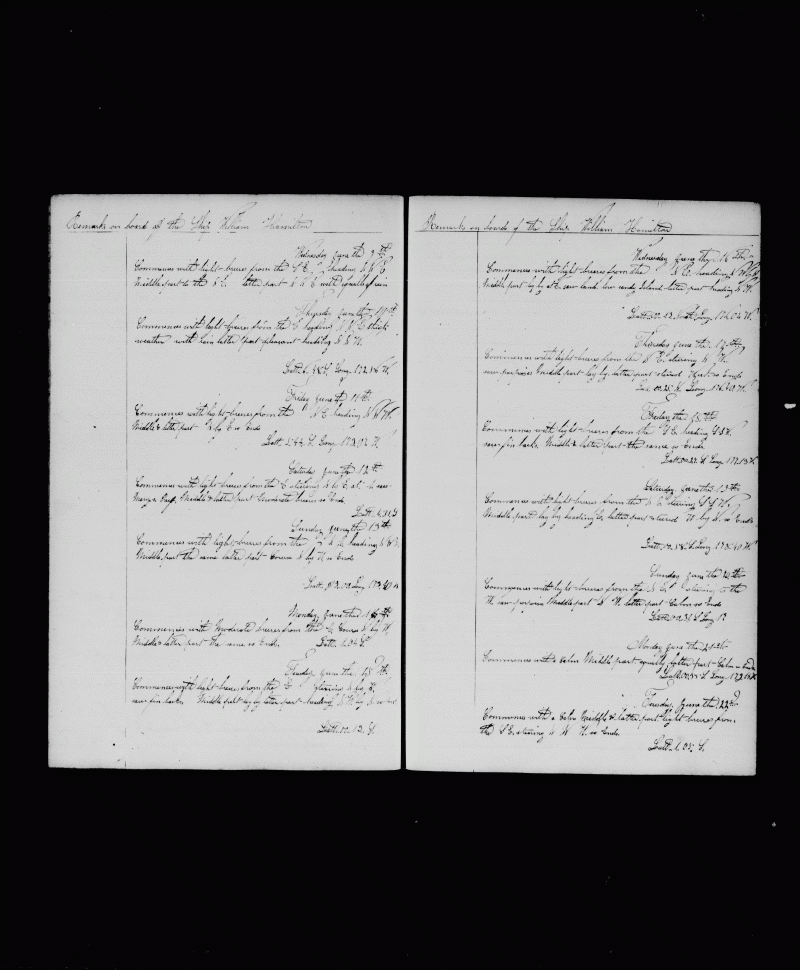 Remarks on board of the Ship William Hamilton
Wednesday June the 9th
Commences with light breeses from the S E heading N N E
Middle part to the latter part N N E with squalls of rain
Thursday June the 10th
Commences with light breeses from the S heading N N E thick
weather with rain latter part pleasant heading S S W
Latt Long 172.18 W
Friday June the 11th
Commences with light breeses from the N E heading N W
Middle & latter part N by E so Ends
Latt 2.44 S Long 173.02 W
Saturday June the 12th
Commences with light breeses from the E stearing N W saw
Middle & latter part Moderate breeses so Ends
Latt
Sunday June the 13th
Commences with light breeses from the heading
Middle part the same latter part Course N by W so Ends
Latt Long 173.40 W
Monday June the 14th
Commences with Moderate breeses from the E Course N by W
Middle & latter part the same so Ends Latt 1.04 S
Tuesday June the 15th
Commences with light breeses from the E stearing N by W
saw fin backs Middle part lay by latter part heading N W by N so Ends
Latt 00.13 S
Remarks on board of the Ship William Hamilton
Wednesday June the 16th
Commences with light breeses from the N E heading
Middle part lay by at saw land low sandy Island latter part heading N W
Latt 00.12 South Long 176.04 W
Thursday June the 17th
Commences with light breeses from the N E stearing W
saw porpoises Middle part lay by latter part steared West so Ends
Latt 00.25 S Long 176.40 W
Friday the 18th
Commences with light breeses from the S E heading S S W
saw fin backs Middle & latter part the same so Ends
Latt 00.22 S Long 177.13 W
Saturday June the 19th
Commences with light breeses from the N E stearing
Middle part lay by heading latter part steared W by N so Ends
Latt 00.18 S Long 178.40 W
Sunday June the 20th
Commences with light breeses from the N E stearing to the
W saw porpoises Middle part S W latter part Calm so Ends
Latt 00.31 S Long
Monday June the 21st
Commences with a Calm Middle part squally latter part Calm so Ends
Latt S Long 179
Tuesday June the 22nd
Commences with a Calm Middle & latter part light breeses from
the S E stearing N W so Ends
Latt 1.05 S